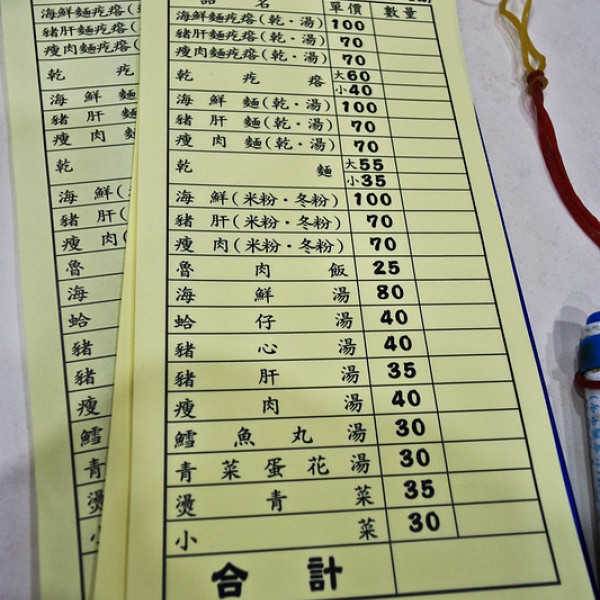 品名 單價 數量
海鮮麵疙瘩(乾·湯) 100
豬肝麵疙瘩(乾·湯) 70
瘦肉麵疙瘩(乾·湯) 70
乾疙瘩 大60
小40
海鮮麵(乾·湯) 100
豬肝麵(乾·湯) 70
瘦肉麵(乾·湯) 70
乾麵 大55
小35
海鮮(米粉·冬粉) 100
豬肝(米粉·冬粉) 70
瘦肉(米粉·冬粉) 70
魯肉飯 25
海鮮湯 80
蛤仔湯 40
豬心湯 40
豬肝湯 35
瘦肉湯 40
鱈魚丸湯 30
青菜蛋花湯 30
燙青菜 35
小菜 30
合計
海鮮麵疙瘩(
豬肝麵疙瘩(
瘦肉麵疙瘩(
乾疙
海鮮麵
豬肝麵
瘦肉麵
乾
海鮮(
豬肝(
瘦肉(
魯
海
蛤
豬
豬
瘦
鱈
青
燙